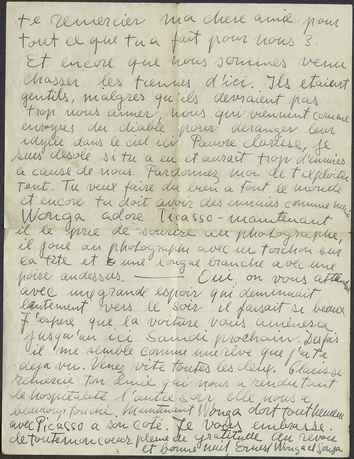 te remercier ma chere amie pour
tout ce que tu a fait pour nous 3.
Et encore que nous sommes venu
chasser les tiennes d'ici. Ils etaient
gentils, malgres qu'ils devraient pas
trop nous aimer, nous qui viennent comme
envoyes du diable pour deranger leur
idylle dans le ciel ici. Pauvre, je
suis desolé si tu a eu et aurait trop d'ennuies
a cause de nous. Pardonnez moi de t'exploiter
tant. Tu veux faire du bien a tout le monde
et encore tu doit avoir des ennuies comme
Wonga adore Picasso - maintenant
il le prie de sourire au photographe,
il joue au photographe avec un torchon sur
la tête et une longue branche avec une
poire andessus. Oui, on vous
avec une grande espoir qui deminuait
lentement vers le soir. il faisait si beau
J'espère que la voiture vous amenera
jusqu'an ici Samdi prochain. Depuis
il me semble comme une rêve que j't'ai
deja vu. Venez vite toutes les deux.
remercie ton amie qui nous a rendu tant
de hospitalité l'autre soir elle nous a
beaucoup. Maintenant Wonga dort tout
avec Picasso a son coté. Je vous embrasse
de tout mon coeur pleine de gratitude au revoir
et bonne nuit Ernes Wonga et